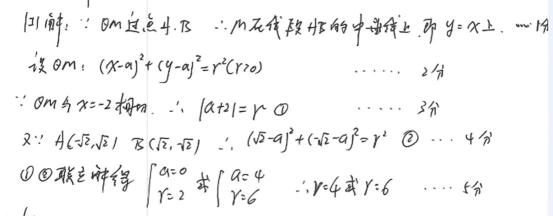 (1)解:∵ ⊙M过点A.B ∴M在线段AB的中垂线上,即y=x上. ……1分
设⊙M:(x-a)²+(y-a)²=r²(r>0) …… 2分
∵⊙M与x=-2相切. ∴|a+2|=r ① …… 3分
又∵ A(-√2,√2) B(√2,-√2) ∴(√2-a)²+(-√2-a)²=r² ② … 4分
①②联立解得 {a=0 r=2 或 {a=4 r=6 ∴r=4或r=6 …. 5分